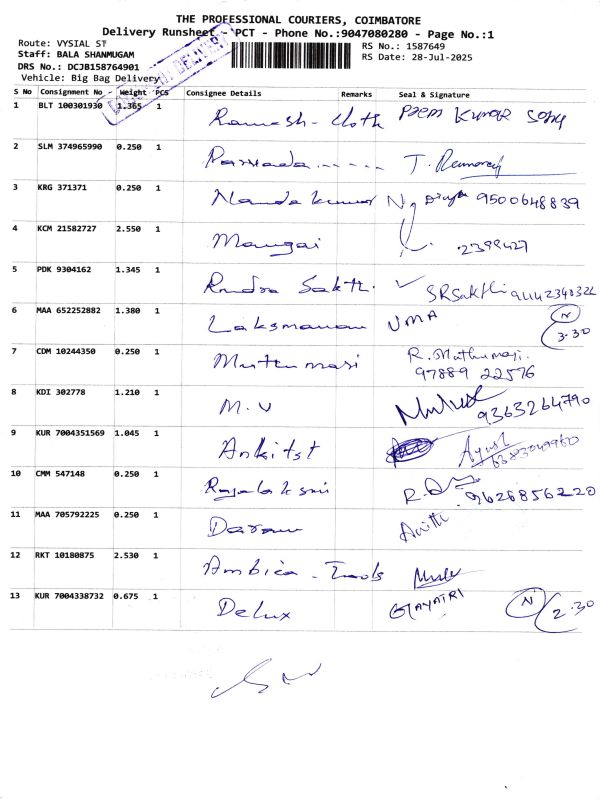 THE PROFESSIONAL COURIERS, COIMBATORE
Delivery Runsheet - PCT - Phone No.:9047080280 - Page No.:1
Route: VYSIAL ST
Staff: BALA SHANMUGAM
DRS No.: DCJB158764901
Vehicle: Big Bag Delivery
RS No.: 1587649
RS Date: 28-Jul-2025
S No Consignment No Weight PCS Consignee Details Remarks Seal & Signature
1 BLT 100301930 1.365 1 Ramesh - Cloth
2 SLM 374965990 0.250 1
3 KRG 371371 0.250 1 Nanda kumar 9500648839
4 KCM 21582727 2.550 1 Mangai 2399427
5 PDK 9304162 1.345 1 Rudra Sakth. SRSakthi
6 MAA 652252882 1.380 1 Laksmanan UMA N 3.30
7 CDM 10244350 0.250 1 Muthumari R. Muthumari
97889 22576
8 KDI 302778 1.210 1 M.V 9363264790
9 KUR 7004351569 1.045 1 Ankitst Ayush
10 CMM 547148 0.250 1 Rajalaksmi 9626856220
11 MAA 705792225 0.250 1
12 RKT 10180875 2.530 1 Ambica - Tools
13 KUR 7004338732 0.675 1 Delux GAYATRI N 2.30